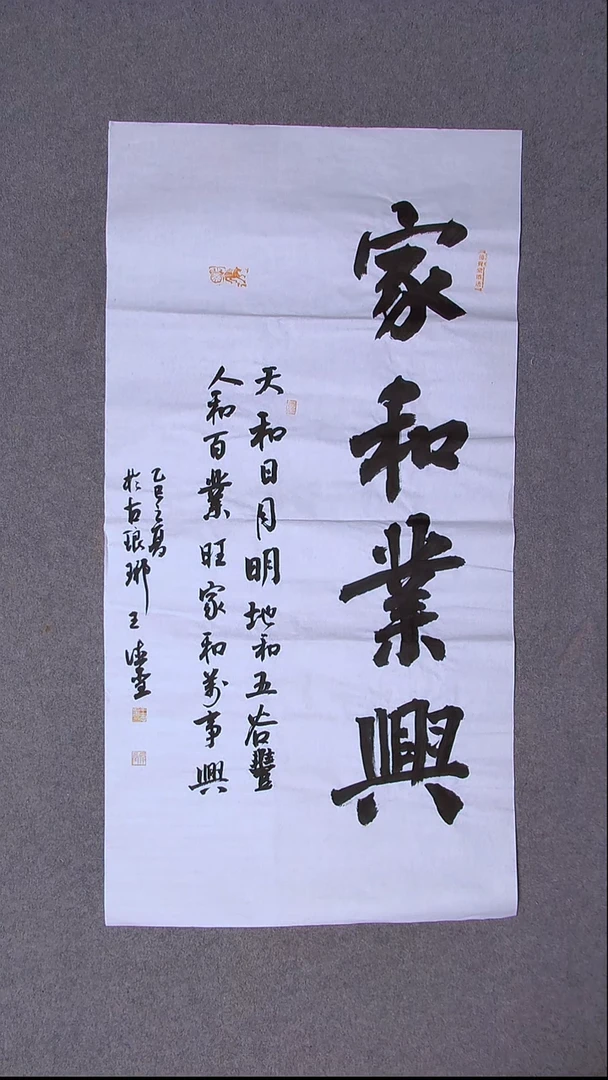 家和業興
天和日月明地和五谷豐
人和百業旺家和万事興
乙巳之夏
於古琅琊王德雲